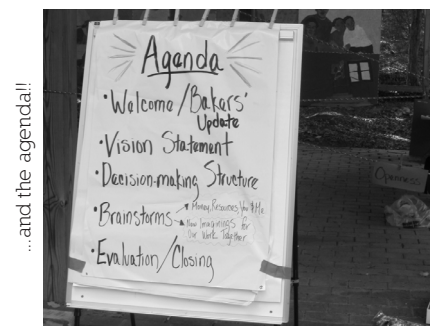 ...and the agenda!!
Agenda
• Welcome/Bakers'
Update
• Vision Statement
• Decision-making Structure
• Brainstorms → Money, Resources, You & Me
→ New Imaginings for
Our Work Together
• Evaluation/Closing
Openness